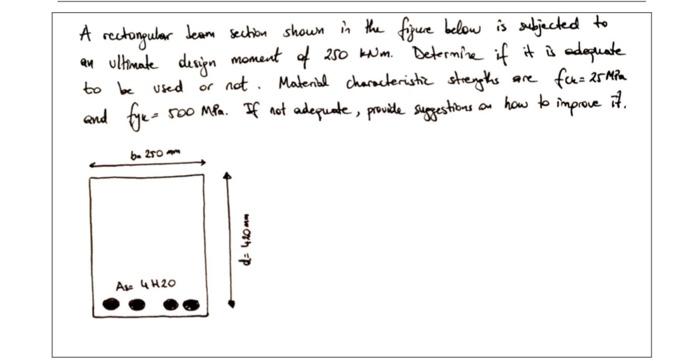 A rectangular beam section shown in the figure below is subjected to
an ultimate design moment of 250 kNm. Determine if it is adequate
to be used or not. Material characteristic strengths are fck= 25 MPa
and fyk= 500 MPa. If not adequate, provide suggestions on how to improve it.
b= 250 mm
d= 420 mm
As= 4H20